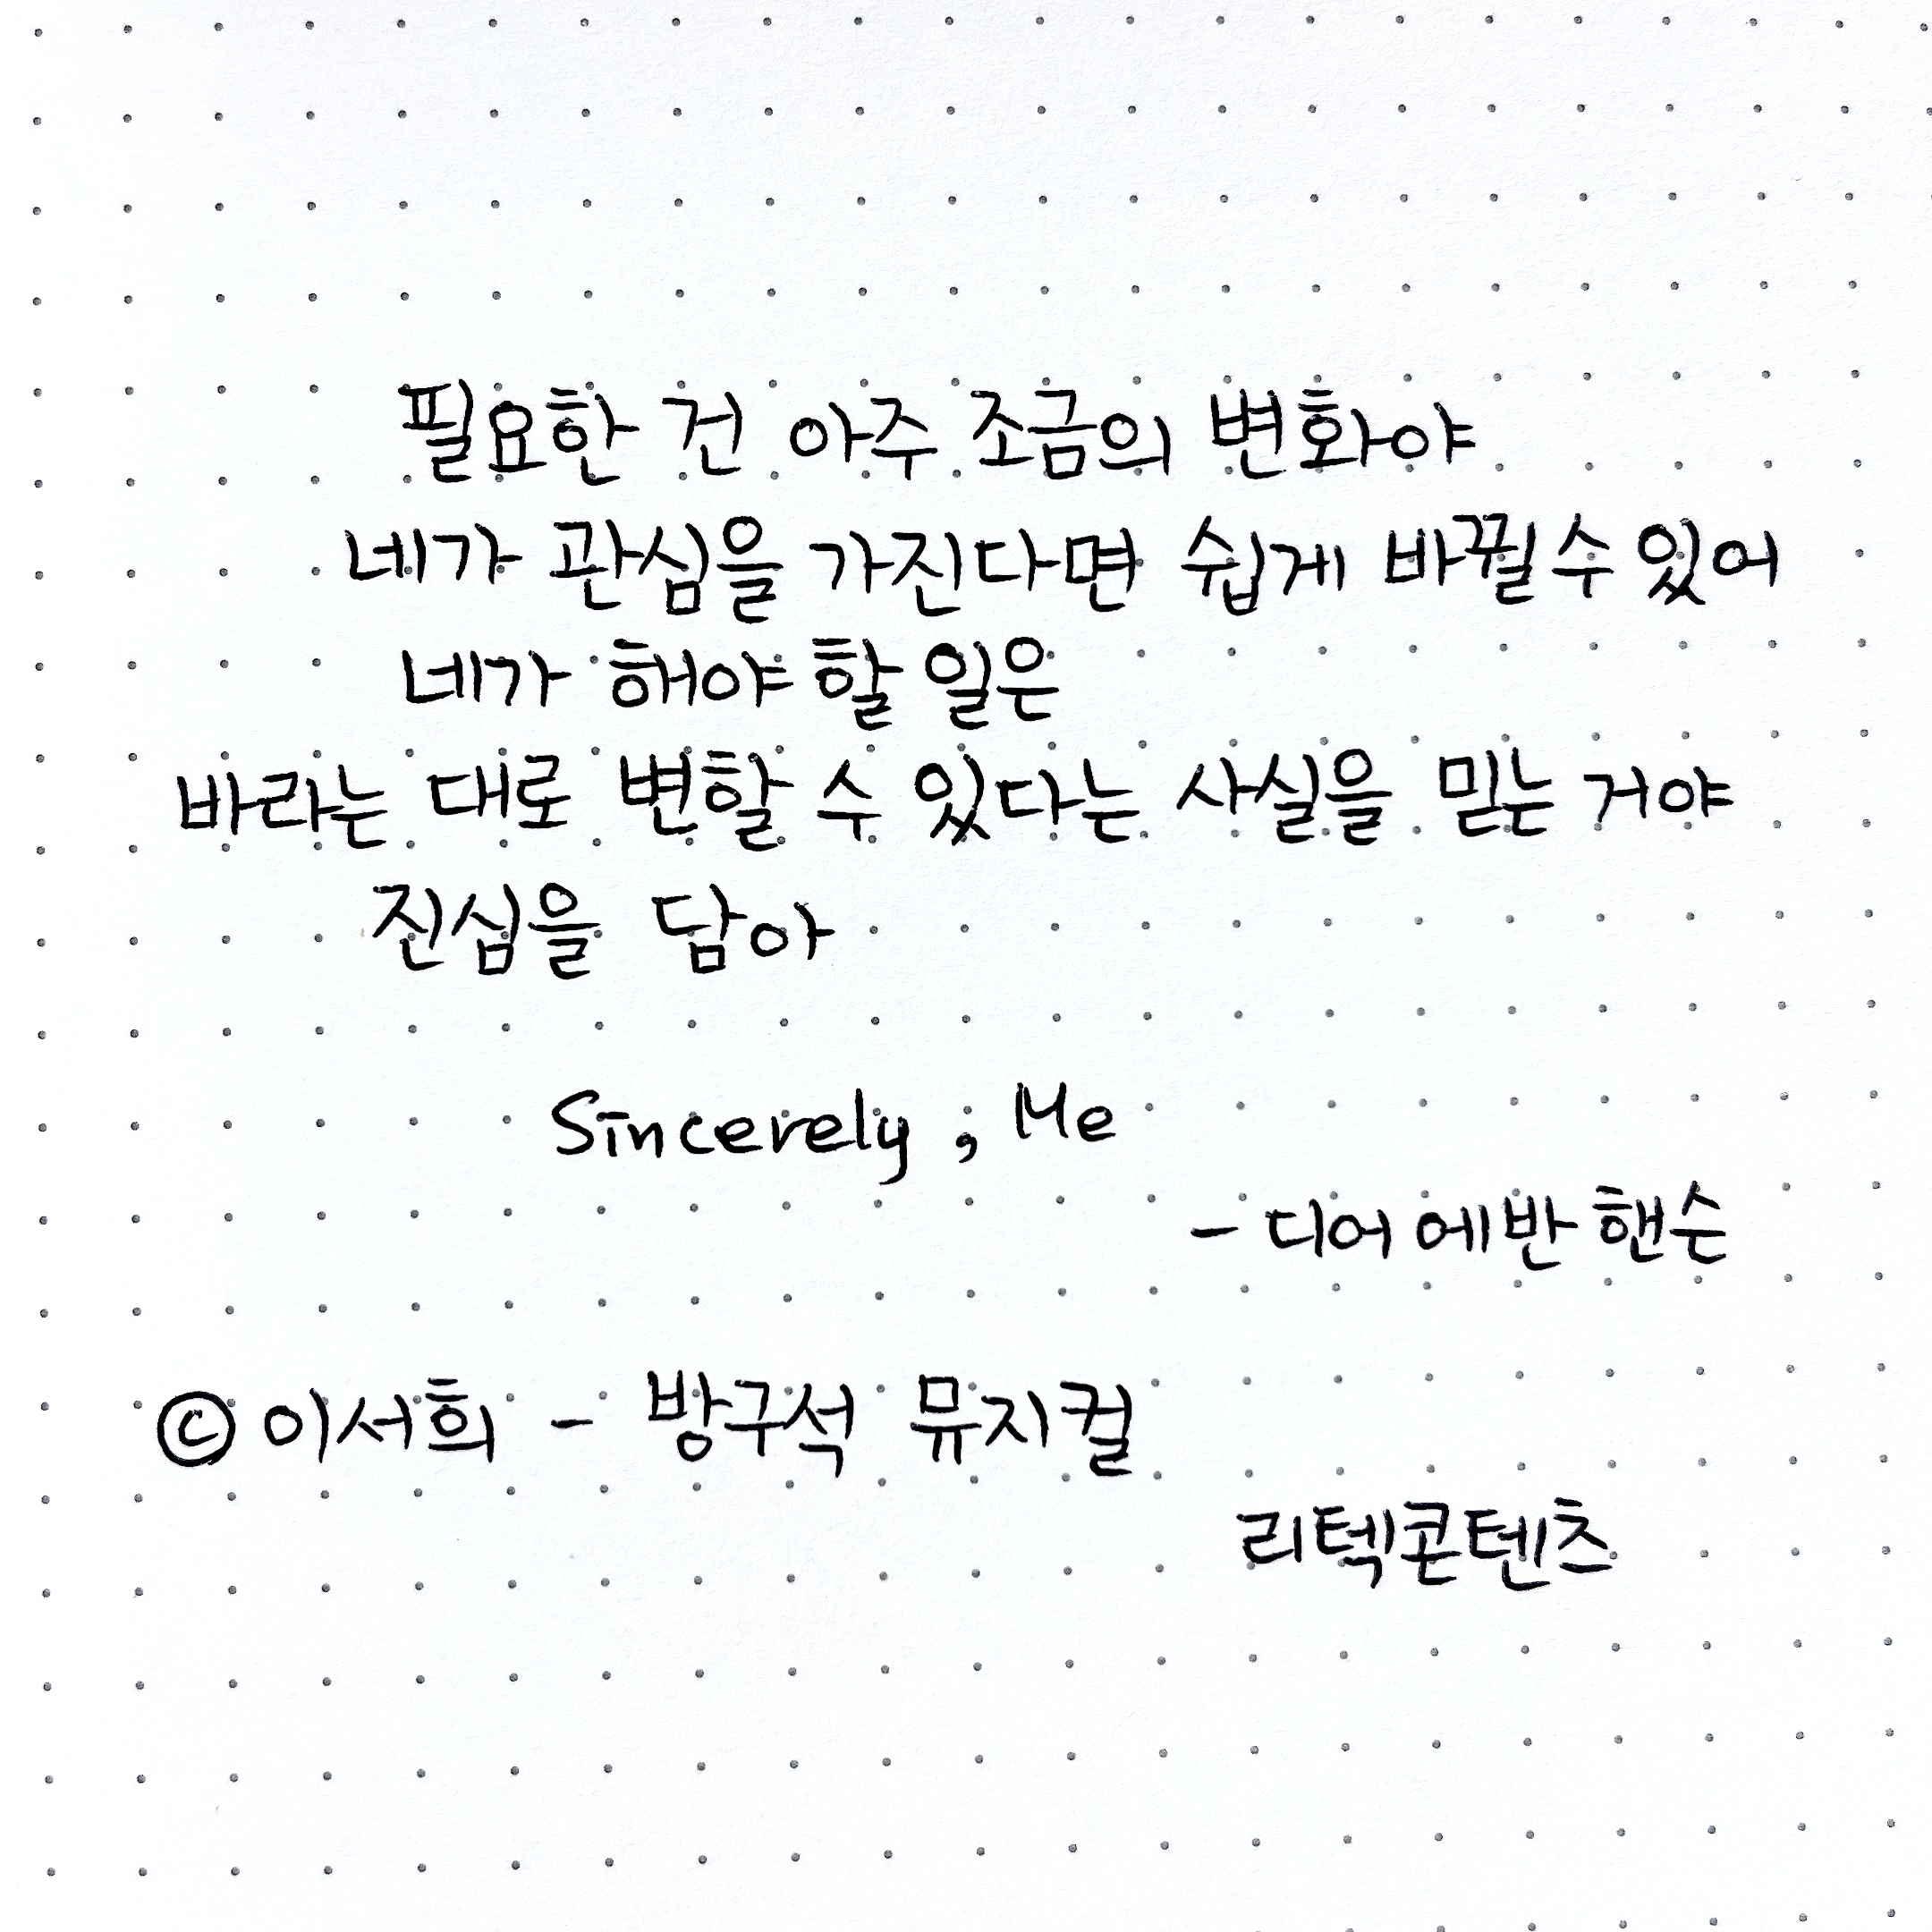 필요한 건 아주 조금의 변화야
네가 관심을 가진다면 쉽게 바뀔 수 있어
네가 해야 할 일은
바라는 대로 변할 수 있다는 사실을 믿는 거야
진심을 담아
Sincerely ; Me
- 디어 에반 핸슨
© 이서희 - 방구석 뮤지컬
리텍콘텐츠